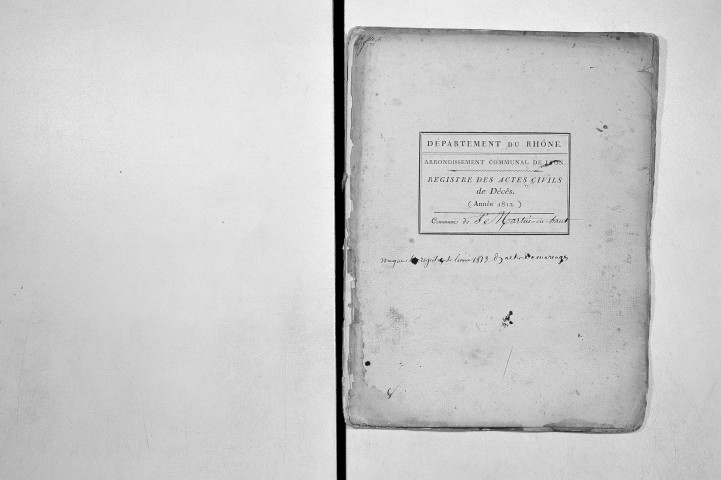 DÉPARTEMENT DU RHÔNE.
ARRONDISSEMENT COMMUNAL DE LYON
REGISTRE DES ACTES CIVILS
de Décès.
(Année 1812)
Commune de St Martin en haut
manque le registre de l'année 1813 des actes de mariages